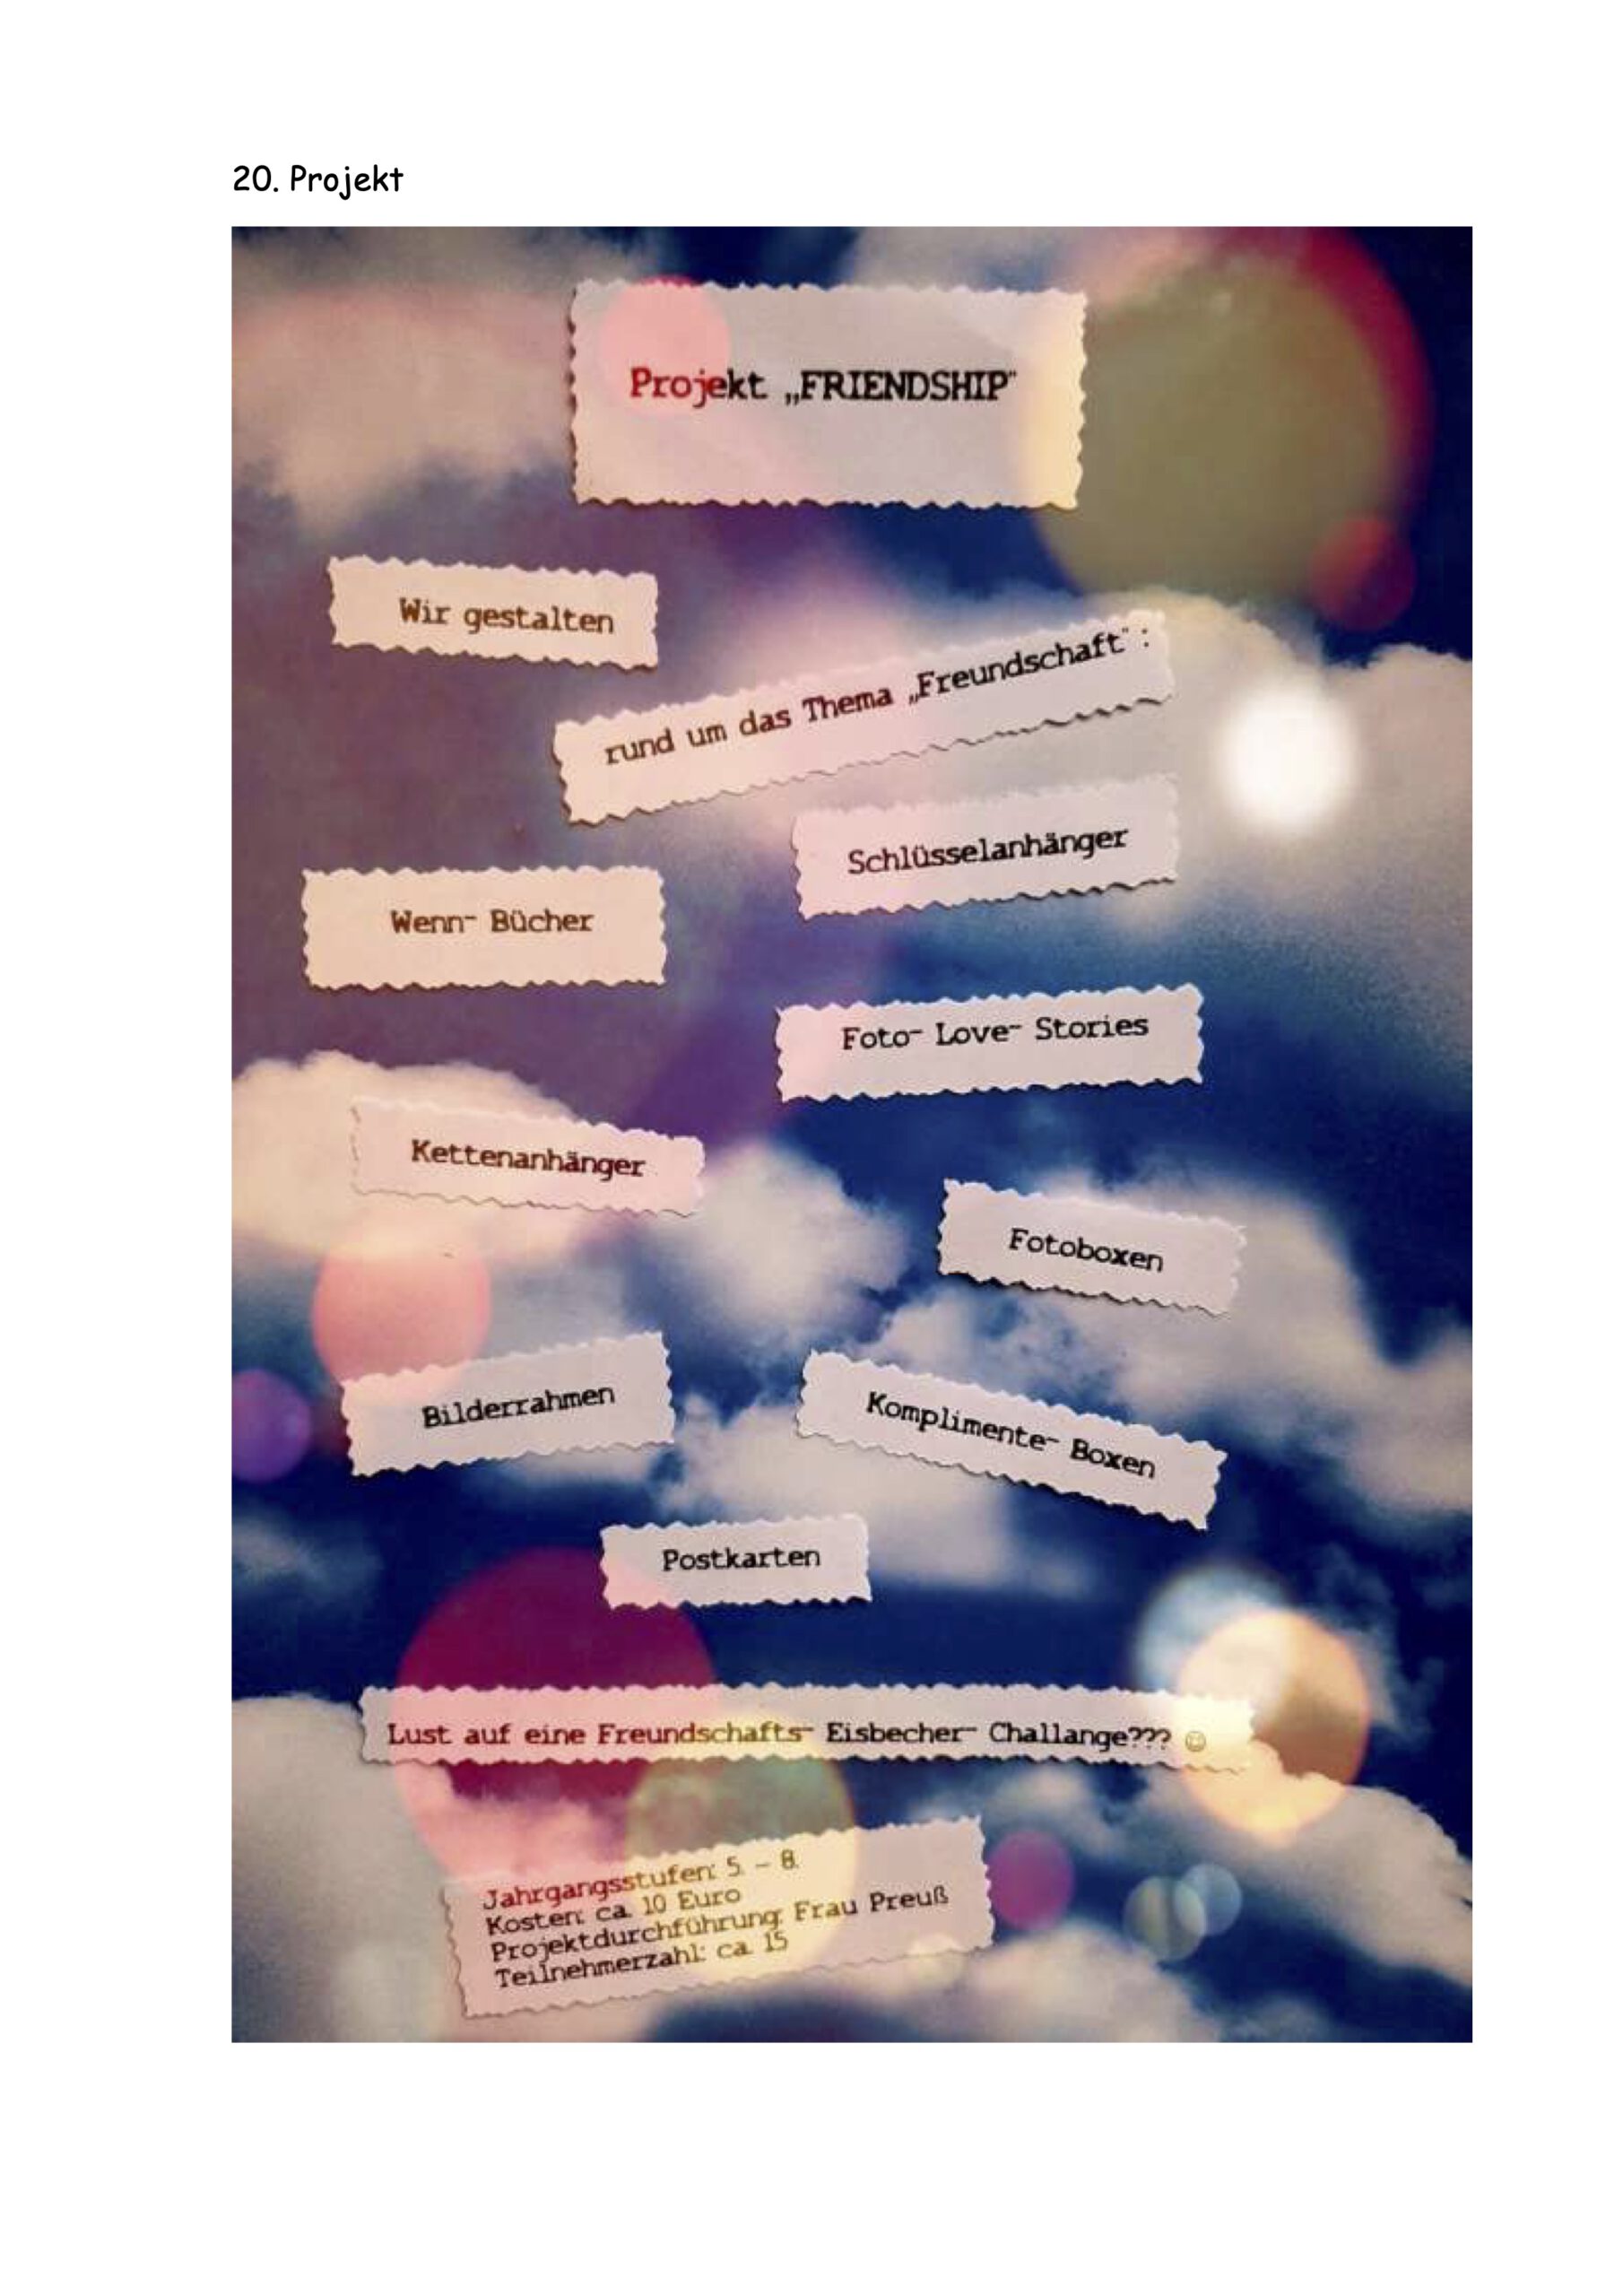 20. Projekt
Projekt „FRIENDSHIP"
Wir gestalten
rund um das Thema „Freundschaft" :
Schlüsselanhänger
Wenn- Bücher
Foto- Love- Stories
Kettenanhänger
Fotoboxen
Bilderrahmen
Komplimente- Boxen
Postkarten
Lust auf eine Freundschafts- Eisbecher- Challange??? ☺
Jahrgangsstufen: 5. – 8.
Kosten: ca. 10 Euro
Projektdurchführung: Frau Preuß
Teilnehmerzahl: ca. 15